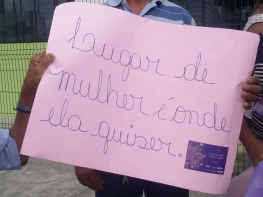 Lugar de
mulher é onde
ela quiser.